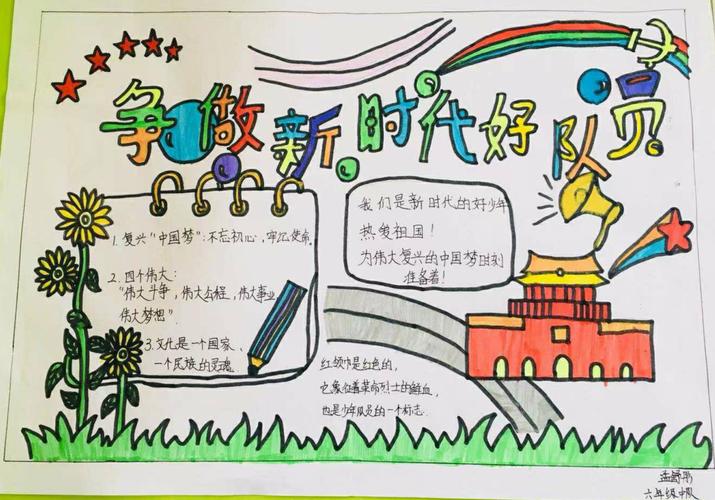 争做新时代好队员
1. 复兴“中国梦”:不忘初心,牢记使命。
2. 四个伟大:
“伟大斗争,伟大工程,伟大事业,
伟大梦想”.
3.文化是一个国家、
一个民族的灵魂
我们是新时代的好少年
热爱祖国!
为伟大复兴的中国梦时刻
准备着!
红领巾是红色的,
它象征着革命烈士的鲜血,
也是少年队员的一个标志.
六年级中队